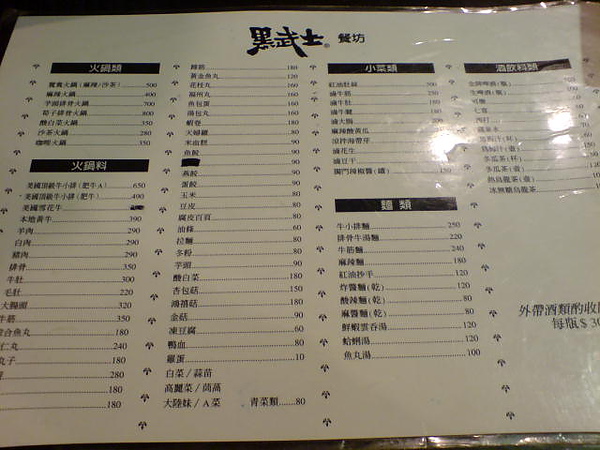 黑武士 餐坊
火鍋類
鴛鴦火鍋(麻辣/沙茶) 500
麻辣火鍋 400
芋頭排骨火鍋 700
筍子排骨火鍋 800
酸白菜火鍋 350
沙茶火鍋 280
咖哩火鍋 350
火鍋料
美國頂級牛小排(肥牛A) 650
美國頂級牛小排(肥牛) 490
美國雪花牛
本地黃牛 390
羊肉 290
白肉 290
豬肉 290
排骨 350
牛肚 300
毛肚 220
大腸頭 320
牛筋 350
合魚丸 180
仁丸 240
丸子 180
280
180
180
蹄筋 180
黃金魚丸 120
花枝丸 160
福州丸 160
魚包蛋 160
湯包丸 160
蝦卷 180
天婦羅 90
米血糕 90
魚餃 90
90
燕餃 90
蛋餃 90
玉米 80
豆皮 80
腐皮百頁 80
油條 60
拉麵 80
冬粉 80
芋頭 90
酸白菜 180
杏包菇 150
鴻禧菇 180
金菇 90
凍豆腐 60
鴨血 80
雞蛋 10
白菜/蒜苗
高麗菜/茼萵
大陸妹/A菜 青菜類 80
小菜類
紅油肚絲
滷牛筋
滷牛肚
滷牛腱
滷大腸
麻辣酸黃瓜
涼拌海帶芽
滷花生
滷豆干
獨門辣椒醬(罐) 150
麵類
牛小排麵 250
排骨牛湯麵 220
牛筋麵 240
麻辣麵 180
紅油抄手 120
炸醬麵(乾) 120
酸辣麵(乾) 80
麻醬麵(乾) 80
鮮蝦雲吞湯 120
蛤蜊湯 120
魚丸湯 100
酒飲料類
金牌啤酒(瓶)
生啤酒(瓶)
可樂
七喜
西打
礦泉水
烏梅汁(杯)
烏梅汁(壺)
冬瓜茶(杯)
冬瓜茶(壺)
熱烏龍茶(壺)
冰無糖烏龍茶
外帶酒類酌收
每瓶$30